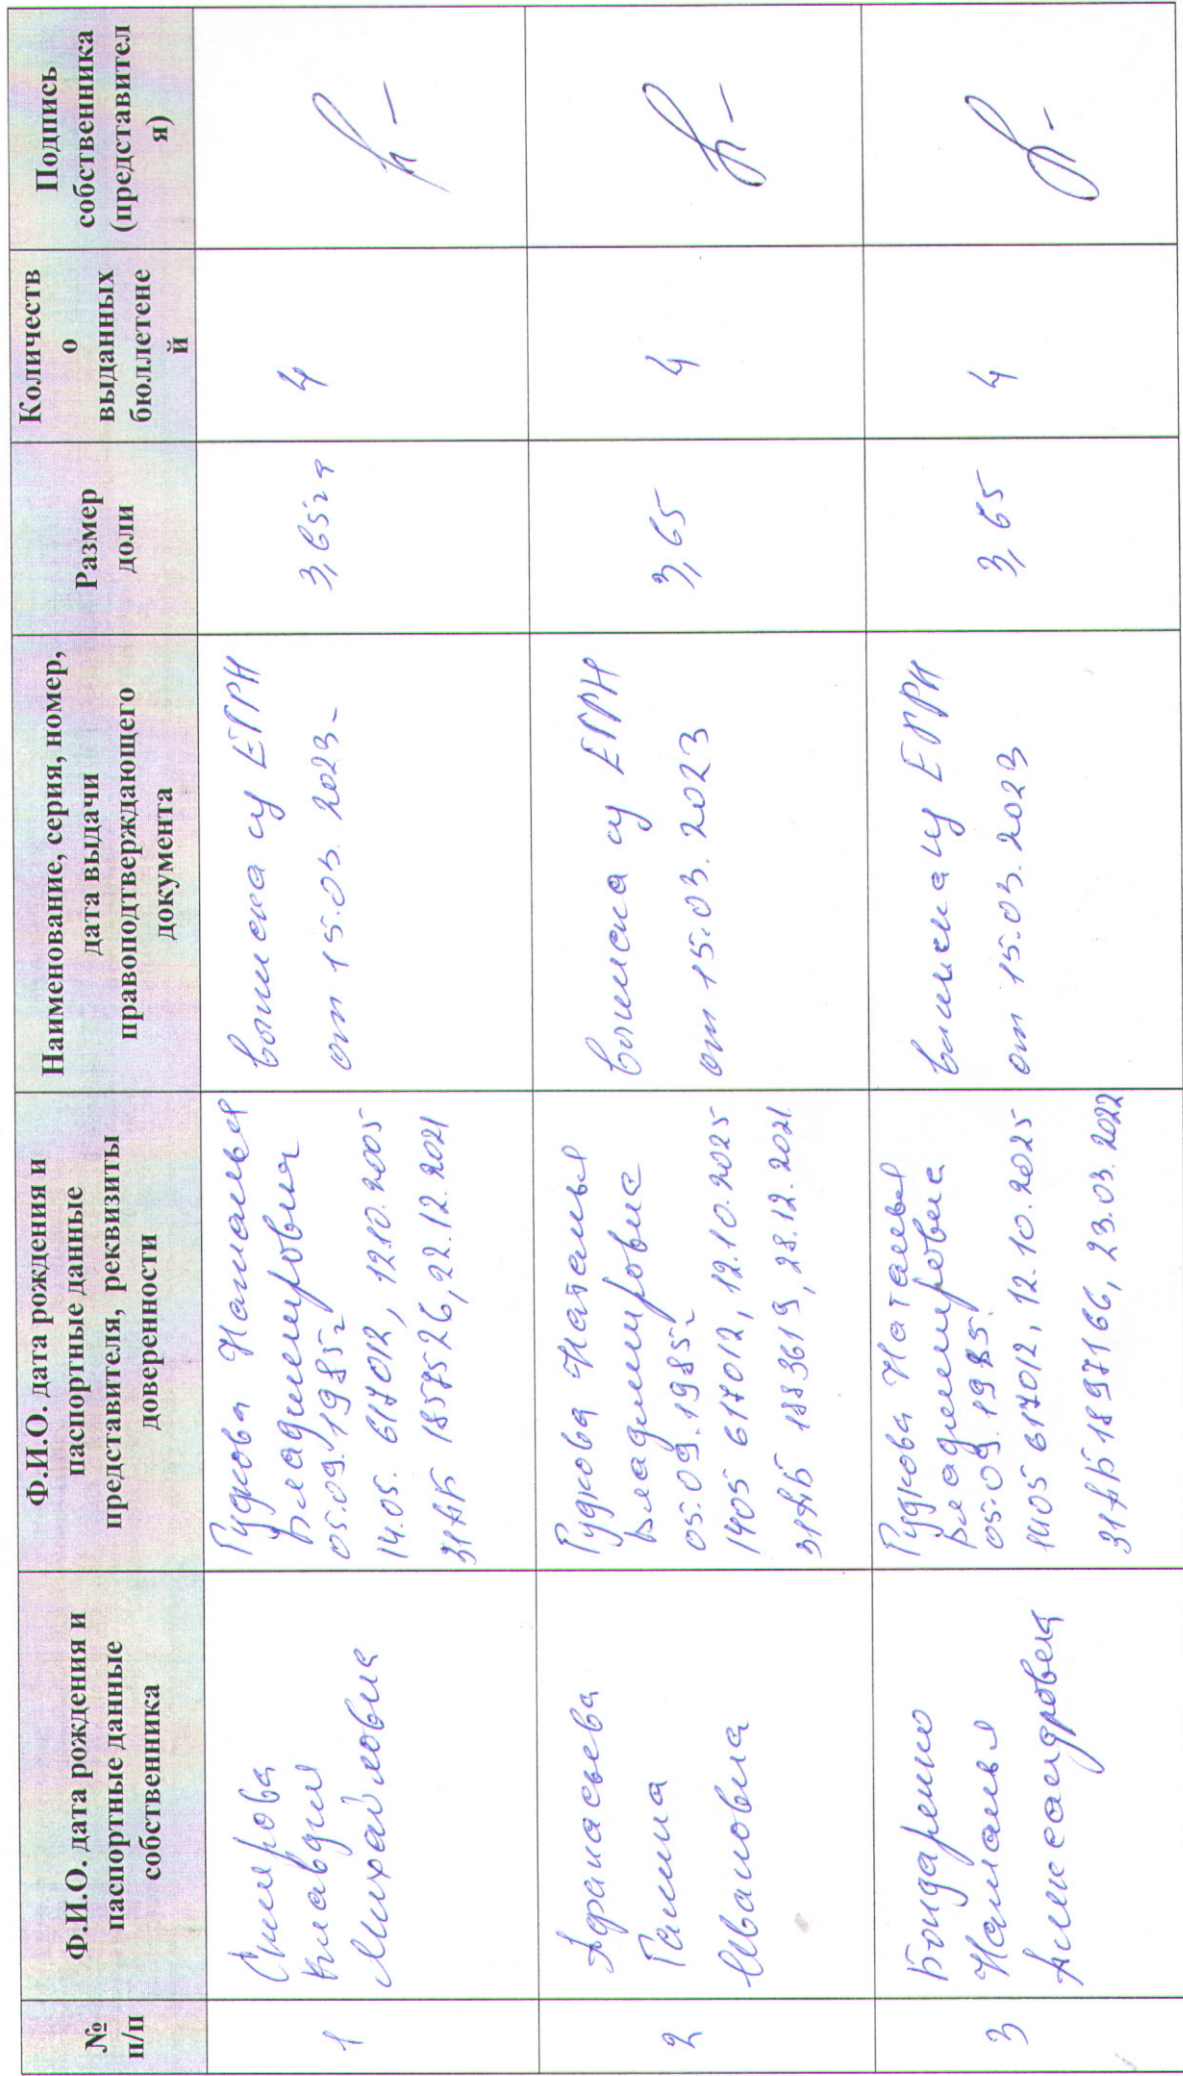 №
п/п
Ф.И.О. дата рождения и
паспортные данные
собственника
Ф.И.О. дата рождения и
паспортные данные
представителя, реквизиты
доверенности
Наименование, серия, номер,
дата выдачи
правоподтверждающего
документа
Размер
доли
Количеств
о
выданных
бюллетене
й
Подпись
собственника
(представител
я)
1
Клавдия
Михайловна
Гудкова Наталья
Владимировна
05.09.1985г
14.05. 617012, 12.10.2005
31АБ 1857526, 22.12.2021
выписка из ЕГРН
от 15.03.2023
3,65га
4
2
Афанасьева
Галина
Ивановна
Гудкова Наталья
Владимировна
05.09.1985г
1405 617012, 12.10.2025
31АБ 1883619, 28.12.2021
выписка из ЕГРН
от 15.03.2023
3,65
4
3
Бондаренко
Наталья
Александровна
Гудкова Наталья
Владимировна
05.09.1985
1405 617012, 12.10.2025
31АБ1897166, 23.03.2022
выписка из ЕГРН
от 15.03.2023
3,65
4